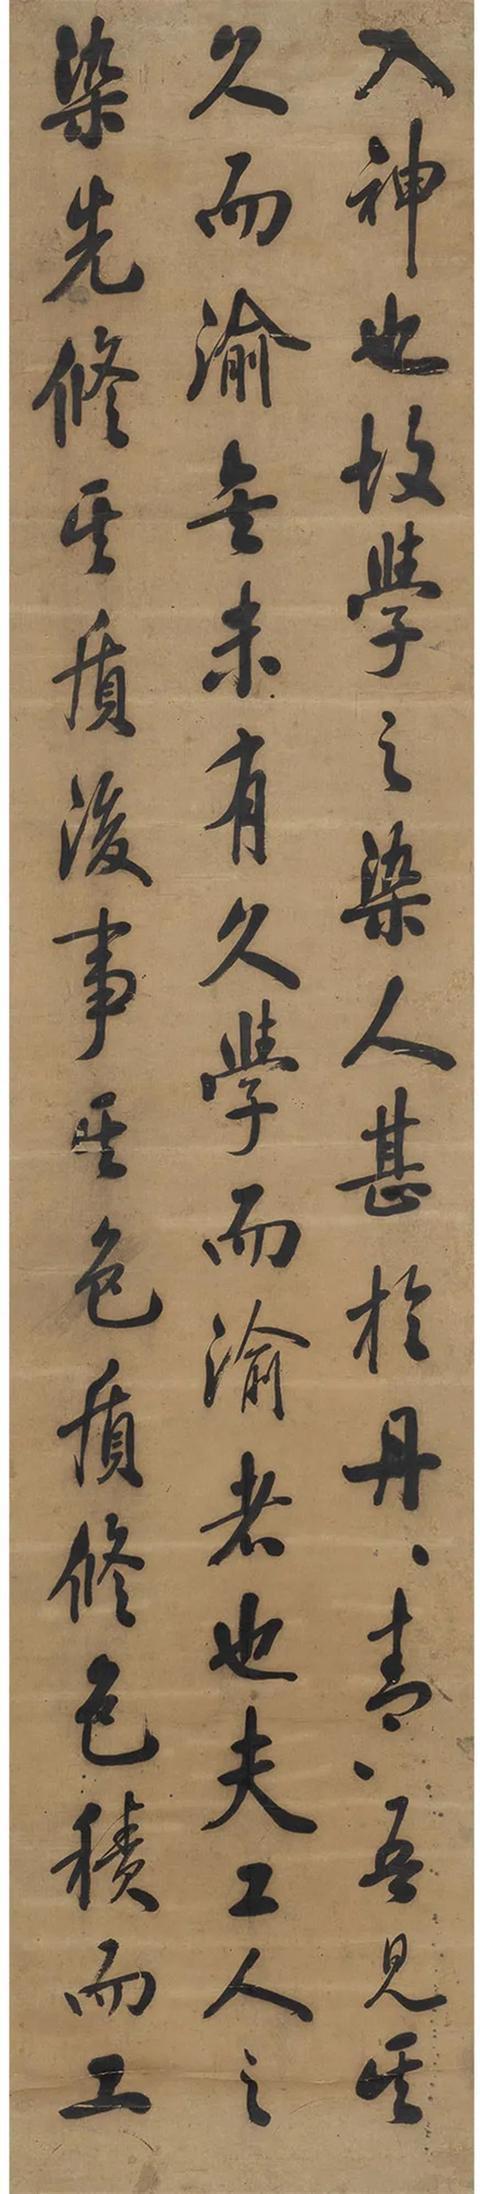 入神也故學之染人甚於丹、青、吾見其
久而渝矣未有久學而渝者也夫工人之
染先修其質後事其色質修色積而工